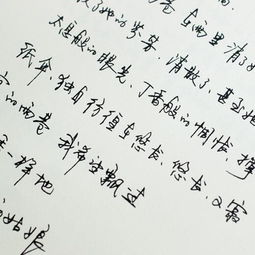 在雨里 消了她
了她的芬芳 消散了，甚至她
太息般的眼光，丁香般的惆怅。撑
纸伞 独自彷徨在悠长、悠长，又寂
的雨巷 我希望飘过
一样地
姑娘